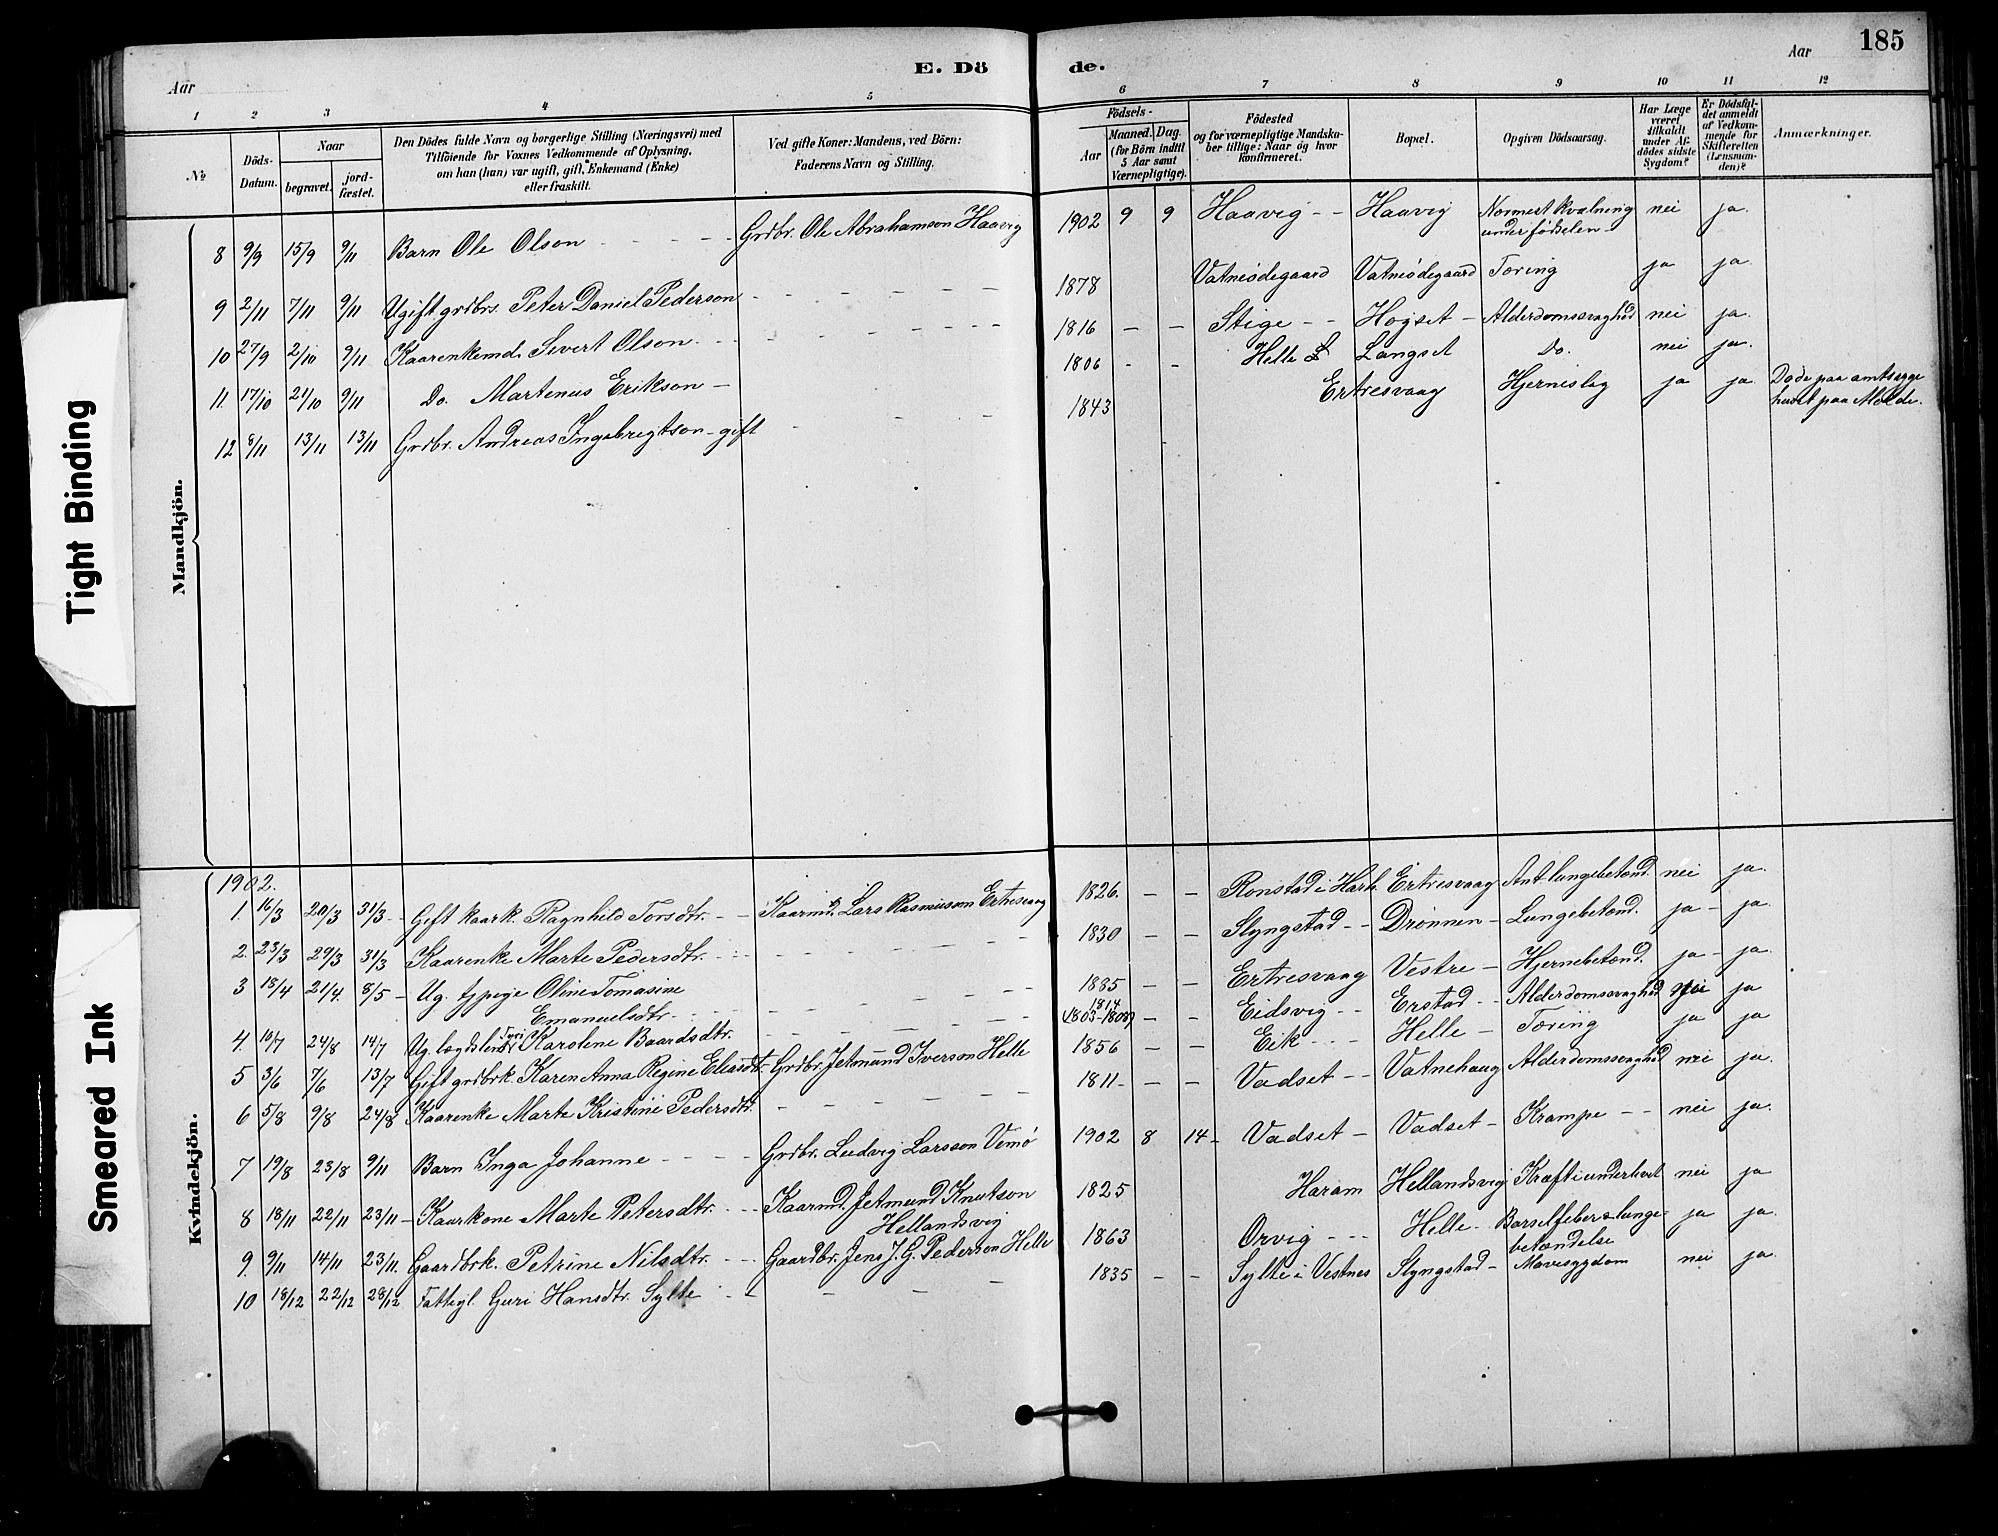 Aar
E. Dö
de.
Aar
185
1 2 3 4 5 6 7 8 9 10 11 12
No
Döds-
Datum.
Naar
begravet.
jord-
fæstet.
Den Dödes fulde Navn og borgerlige Stilling (Næringsvei) med
Tilföiende for Voxnes Vedkommende af Oplysning,
om han (hun) var ugift, gift, Enkemand (Enke)
eller fraskilt.
Ved gifte Koner: Mandens, ved Börn:
Faderens Navn og Stilling.
Födsels-
Aar
Maaned. Dag.
(for Börn indtil
5 Aar samt
Værnepligtige).
Födested
og for værnepligtige Mandska-
ber tillige: Naar og hvor
konfirmeret.
Bopæl.
Opgiven Dödsaarsag.
Har Læge
været
tilkaldt
under Af-
dödes sidste
Sygdom?
Er Dödsfal-
det anmeldt
af Vedkom-
mende for
Skifteretten
(Lensman-
den)?
Anmærkninger.
Mandkjön.
8 9/9 15/9 9/11 Barn Ole Olson - - - - Grdbr. Ole Abrahamson Haavig 1902 9 9 Haavig - - Haavig Nærmest kvælning nei ja.
under fødselen
9 2/11 7/11 9/11 Ugift grdbrs. Peter Daniel Pederson - - - - - 1878 Vatneødegaard Vatneødegaard Tæring ja ja.
10 27/9 2/10 9/11 Kaarenkemd. Sivert Olson - - - 1816 - - Stige - - Hogset - Alderdomssvaghed nei ja.
11. 17/10 21/10 9/11 Do. Martenus Erikson - 1806 - - Helle Langset Do. nei ja.
12 8/11 13/11 13/11 Grdbr. Andreas Ingebregtson - gift - - - 1843 Ertresvaag Hjerneslag ja ja Døde paa amtssyge
huset paa Molde.
Kvindekjön.
1902.
1. 16/3 20/3 31/3 - Gift kaark. Ragnhild Torsdtr. - - Kaarmd. Lars Rasmuson Ertresvaag 1826. - - Ronstad i Harh. Ertresvaag Ant. lungebetænd. nei ja.
2. 23/3 29/3 31/3 Kaarenke Marte Pedersdtr. - - - - 1830 - - Slyngstad - - Drønnen - Lungebetænd. ja - ja.
3 18/4 21/4. 8/5 - Ug. tjpige Oline Tomasine 1885 - - Ertresvaag Vestre - Hjernebetænd. ja - ja.
Emanuelsdtr. - - -
4. 10/7 24/8 14/7 Ug. lægdslem Karolene Baardsdtr. 1814 (1803-1808) - - Eidsvig - - Erstad - - Alderdomssvaghed nei ja
5 3/6 7/6 13/7 Gift grdbrk. Karen Anna Regine Eliasdtr. Grdbr. Jetmund Iverson Helle 1856 - - Eik - - - Helle - Tæring ja ja
6 5/8 9/8 24/8 Kaarenke Marte Kristine Pedersdtr. - - - - - 1811 - - - Vadset - - Vatnehaug Alderdomssvaghed nei ja.
7 19/8 23/8 9/11 Barn Inga Johanne - - - - Grdbr. Ludvig Larsson Vemø 1902 8 14 - Vadset - Vadset - Krampe - - nei ja.
8 18/11 22/11 23/11 - Kaarkone Marte Petersdtr. - - - Kaarmd. Jetmund Knutson 1825 Haram Hellandsvig Kræft i underlivet nei ja
Hellandsvig
9. 9/11 14/11 23/11. Gaardbrk. Petrine Nilsdtr. - - - Gaardbr. Jens J. G. Pederson Helle 1863 Orvig - - - Helle - Barselfeber & lunge- ja ja.
betændelse
10 18/12 22/12 28/12 Fattigl. Guri Hansdtr. Sylte - - - - - 1835 - - Sylte i Vestnes Slyngstad - Mavesygdom nei ja.
Tight Binding
Smeared Ink